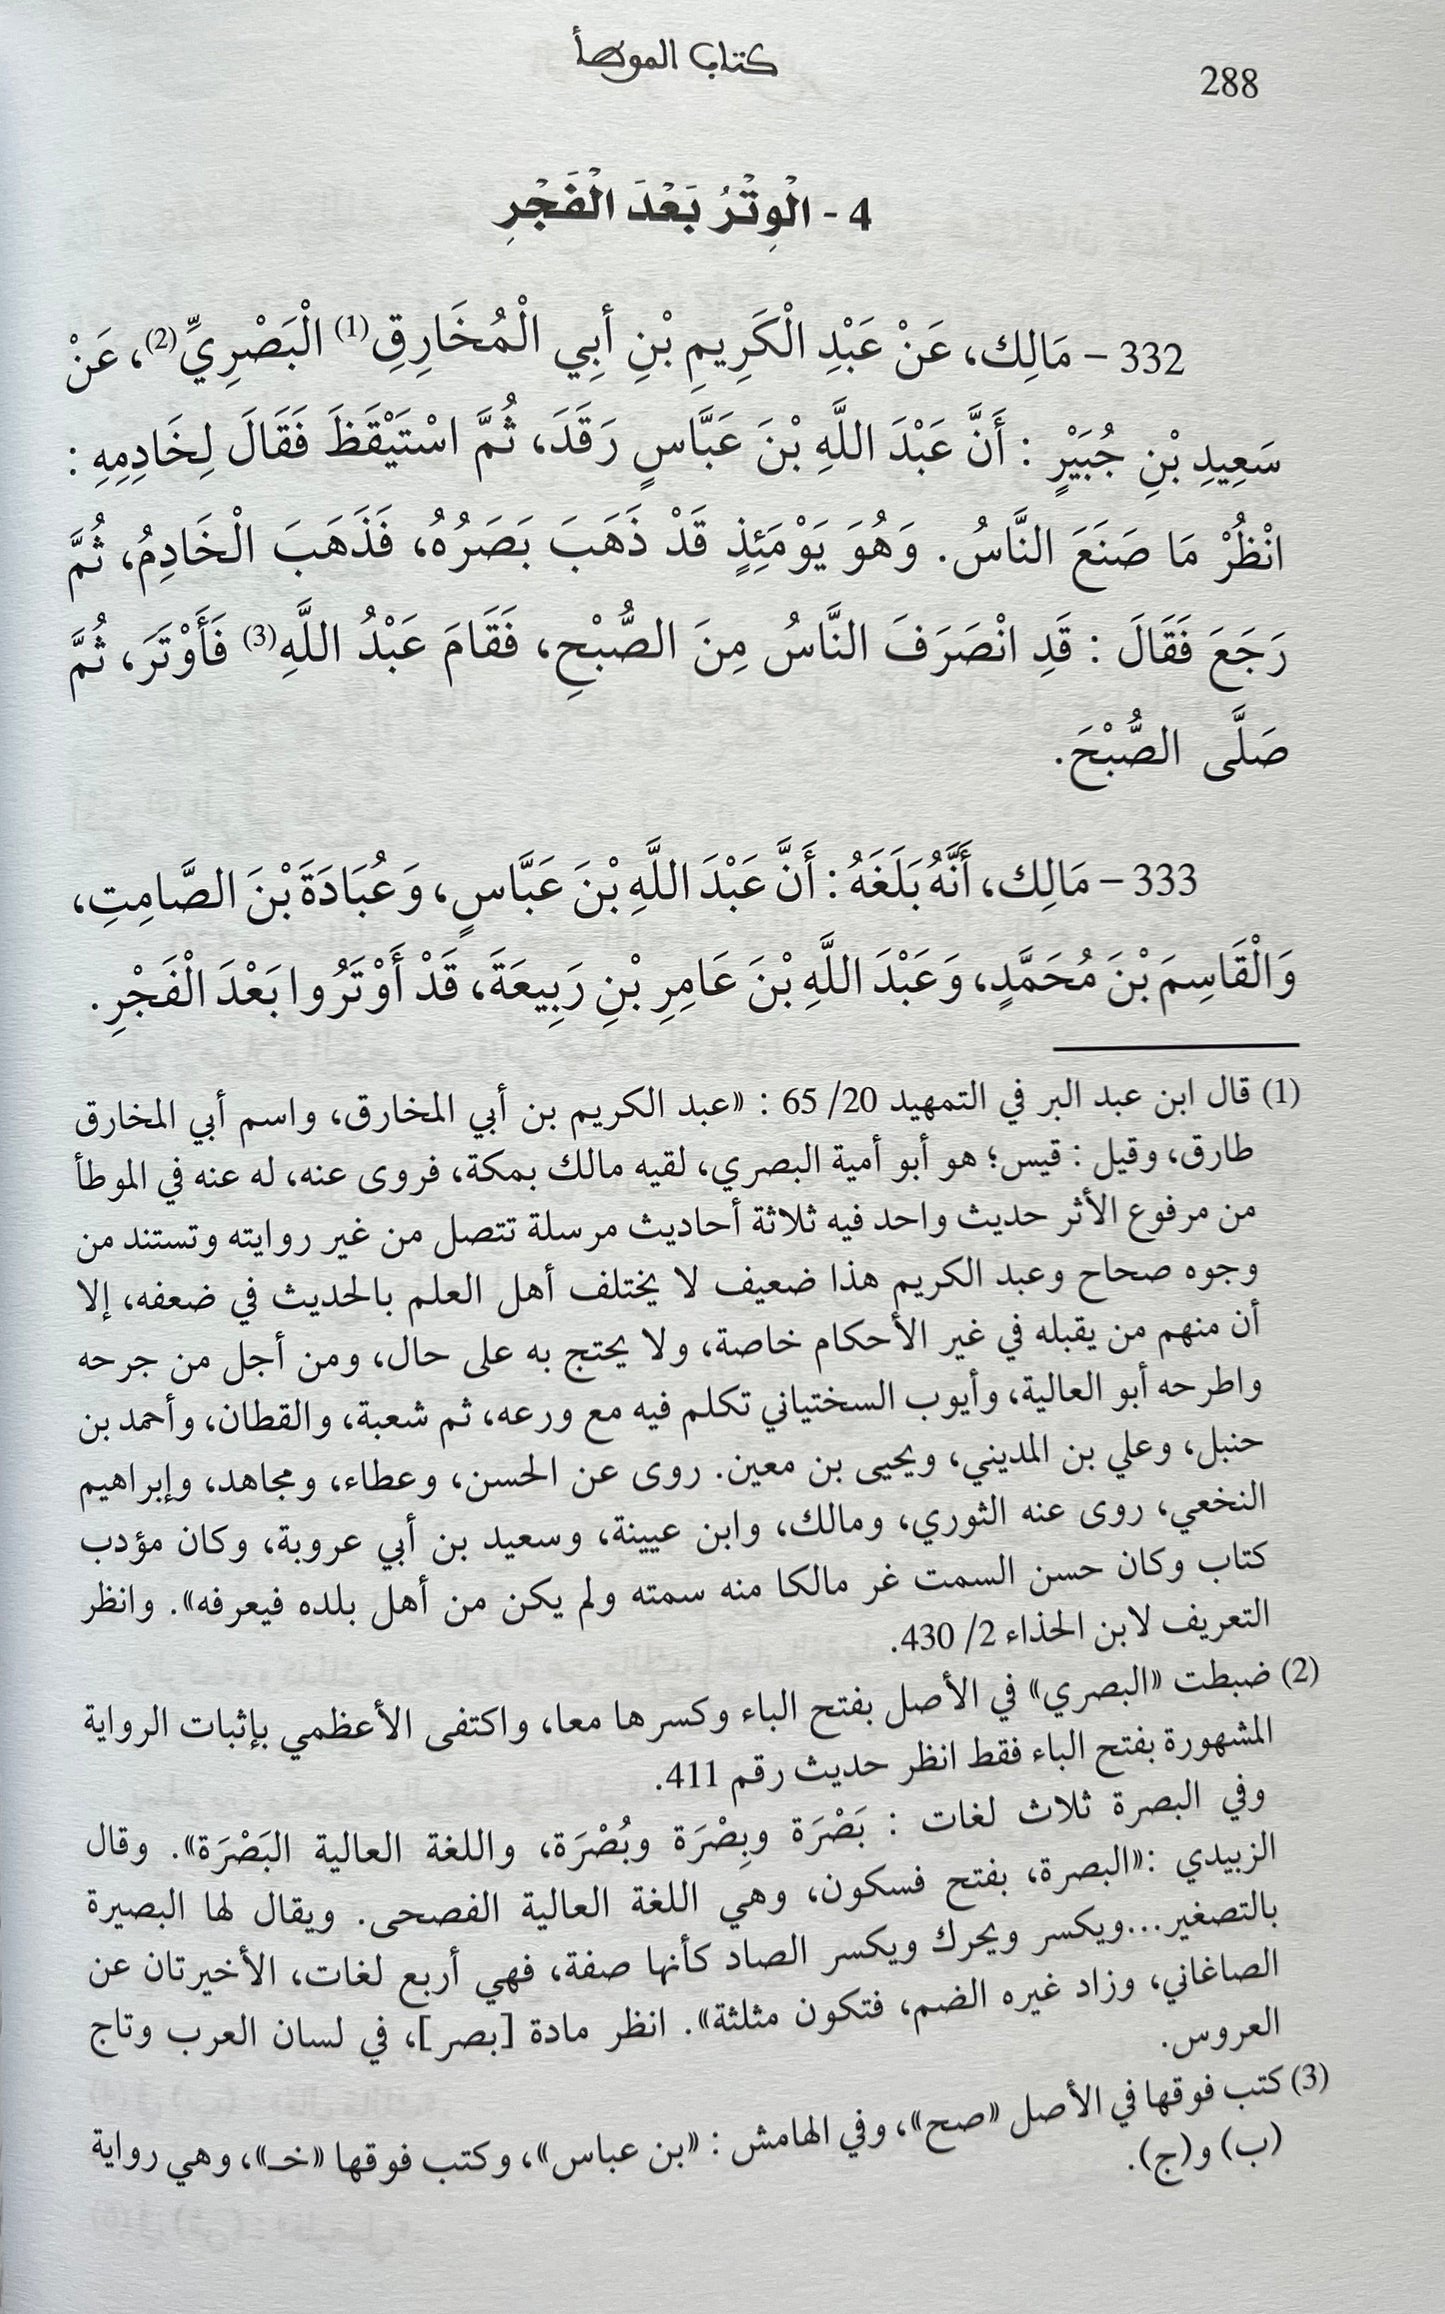 كتاب الموطأ
288
4 - الْوِتْرُ بَعْدَ الْفَجْرِ
332 – مَالِك، عَنْ عَبْدِ الْكَرِيمِ بْنِ أَبِي الْمُخَارِقِ(1) الْبَصْرِيِّ(2)، عَنْ
سَعِيدِ بْنِ جُبَيْرٍ : أَنَّ عَبْدَ اللَّهِ بْنَ عَبَّاسٍ رَقَدَ، ثُمَّ اسْتَيْقَظَ فَقَالَ لِخَادِمِهِ :
انْظُرْ مَا صَنَعَ النَّاسُ. وَهُوَ يَوْمَئِذٍ قَدْ ذَهَبَ بَصَرُهُ، فَذَهَبَ الْخَادِمُ، ثُمَّ
رَجَعَ فَقَالَ : قَدِ انْصَرَفَ النَّاسُ مِنَ الصُّبْحِ، فَقَامَ عَبْدُ اللَّهِ(3) فَأَوْتَرَ، ثُمَّ
صَلَّى الصُّبْحَ.
333 – مَالِك، أَنَّهُ بَلَغَهُ : أَنَّ عَبْدَ اللَّهِ بْنَ عَبَّاسٍ، وَعُبَادَةَ بْنَ الصَّامِتِ،
وَالْقَاسِمَ بْنَ مُحَمَّدٍ، وَعَبْدَ اللَّهِ بْنَ عَامِرِ بْنِ رَبِيعَةَ، قَدْ أَوْتَرُوا بَعْدَ الْفَجْرِ.
(1) قال ابن عبد البر في التمهيد 20/ 65 : «عبد الكريم بن أبي المخارق، واسم أبي المخارق
طارق، وقيل : قيس؛ هو أبو أمية البصري، لقيه مالك بمكة، فروى عنه، له عنه في الموطأ
من مرفوع الأثر حديث واحد فيه ثلاثة أحاديث مرسلة تتصل من غير روايته وتستند من
وجوه صحاح وعبد الكريم هذا ضعيف لا يختلف أهل العلم بالحديث في ضعفه، إلا
أن منهم من يقبله في غير الأحكام خاصة، ولا يحتج به على حال، ومن أجل من جرحه
واطرحه أبو العالية، وأيوب السختياني تكلم فيه مع ورعه، ثم شعبة، والقطان، وأحمد بن
حنبل، وعلي بن المديني، ويحيى بن معين. روى عن الحسن، وعطاء، ومجاهد، وإبراهيم
النخعي، روى عنه الثوري، ومالك، وابن عيينة، وسعيد بن أبي عروبة، وكان مؤدب
كتاب وكان حسن السمت غر مالكا منه سمته ولم يكن من أهل بلده فيعرفه». وانظر
التعريف لابن الحذاء 2/ 430.
(2) ضبطت «البصري» في الأصل بفتح الباء وكسرها معا، واكتفى الأعظمي بإثبات الرواية
المشهورة بفتح الباء فقط انظر حديث رقم 411.
وفي البصرة ثلاث لغات : بَصْرَة وبِصْرَة وبُصْرَة، واللغة العالية البَصْرَة». وقال
الزبيدي :«البصرة، بفتح فسكون، وهي اللغة العالية الفصحى. ويقال لها البصيرة
بالتصغير...ويكسر ويحرك ويكسر الصاد كأنها صفة، فهي أربع لغات، الأخيرتان عن
الصاغاني، وزاد غيره الضم، فتكون مثلثة». انظر مادة [بصر]، في لسان العرب وتاج
العروس.
(3) كتب فوقها في الأصل «صح»، وفي الهامش : «بن عباس»، وكتب فوقها «خـ»، وهي رواية
(ب) و(ج).